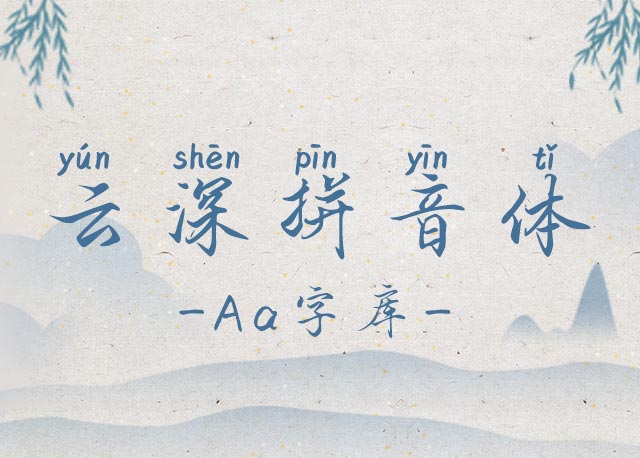 yún shēn pīn yīn tǐ
云深拼音体
-Aa字库-